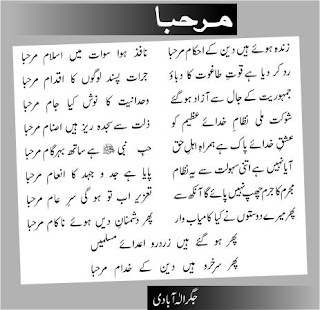 مرحبا
زندہ ہوئے ہیں دین کے احکام مرحبا نافذ ہوا سوات میں اسلام مرحبا
رد کر دیا ہے قوتِ طاغوت کا دباؤ جرات پسند لوگوں کا اقدام مرحبا
جمہوریت کے جال سے آزاد ہو گئے وحدانیت کا نوش کیا جام مرحبا
شوکت ملی نظامِ خدائے عظیم کو ذلت سے سجدہ ریز ہیں اصنام مرحبا
عشقِ خدائے پاک ہے ہمراہِ اہلِ حق حب نبی ﷺ ہے ساتھ بہر گام مرحبا
آیا نہیں ہے اتنی سہولت سے یہ نظام پایا ہے جد و جہد کا انعام مرحبا
مجرم کا جرم چھپ نہیں پائے گا آنکھ سے تعزیر اب تو ہو گی سرِ عام مرحبا
پھر میرے دوستوں نے کیا کامیاب وار پھر دشمنانِ دیں ہوئے ناکام مرحبا
پھر ہو گئے ہیں زرد رو اعدائے مسلمیں
پھر سرخرو ہیں دین کے خدام مرحبا
جگر الہٰ آبادی